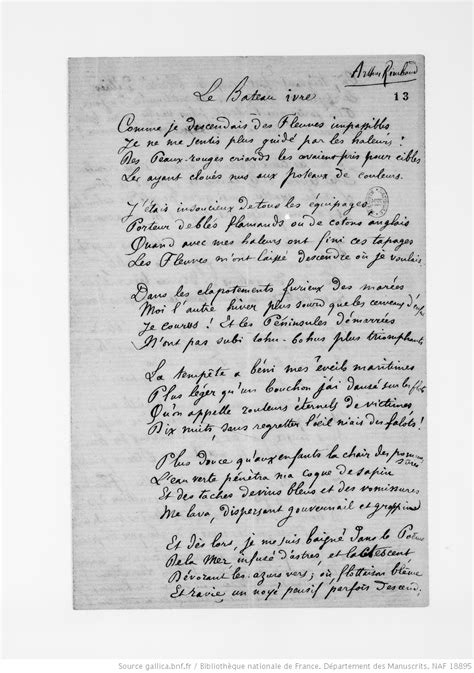 Arthur Rimbaud
13
Le Bateau ivre
Comme je descendais des Fleuves impassibles
Je ne me sentis plus guidé par les haleurs :
Des Peaux-rouges criards les avaient pris pour cibles
Les ayant cloués nus aux poteaux de couleurs.
J'étais insoucieux de tous les équipages
Porteur de blés flamands ou de cotons anglais
Quand avec mes haleurs ont fini ces tapages
Les Fleuves m'ont laissé descendre où je voulais
Dans les clapotements furieux des marées
Moi l'autre hiver plus sourd que les cerveaux d'enfants
Je courus ! Et les Péninsules démarrées
N'ont pas subi tohu-bohus plus triomphants
La tempête a béni mes éveils maritimes
Plus léger qu'un bouchon j'ai dansé sur les flots
Qu'on appelle rouleurs éternels de victimes
Dix nuits, sans regretter l'œil niais des falots !
Plus douce qu'aux enfants la chair des pommes sûres
L'eau verte pénétra ma coque de sapin
Et des taches de vins bleus et des vomissures
Me lava, dispersant gouvernail et grappin
Et dès lors, je me suis baigné dans le Poëme
De la Mer infusé d'astres et latescent
Dévorant les azurs vers ; où, flottaison blême
Et ravie un noyé pensif parfois descend,
Source gallica.bnf.fr / Bibliothèque nationale de France. Département des Manuscrits. NAF 18895